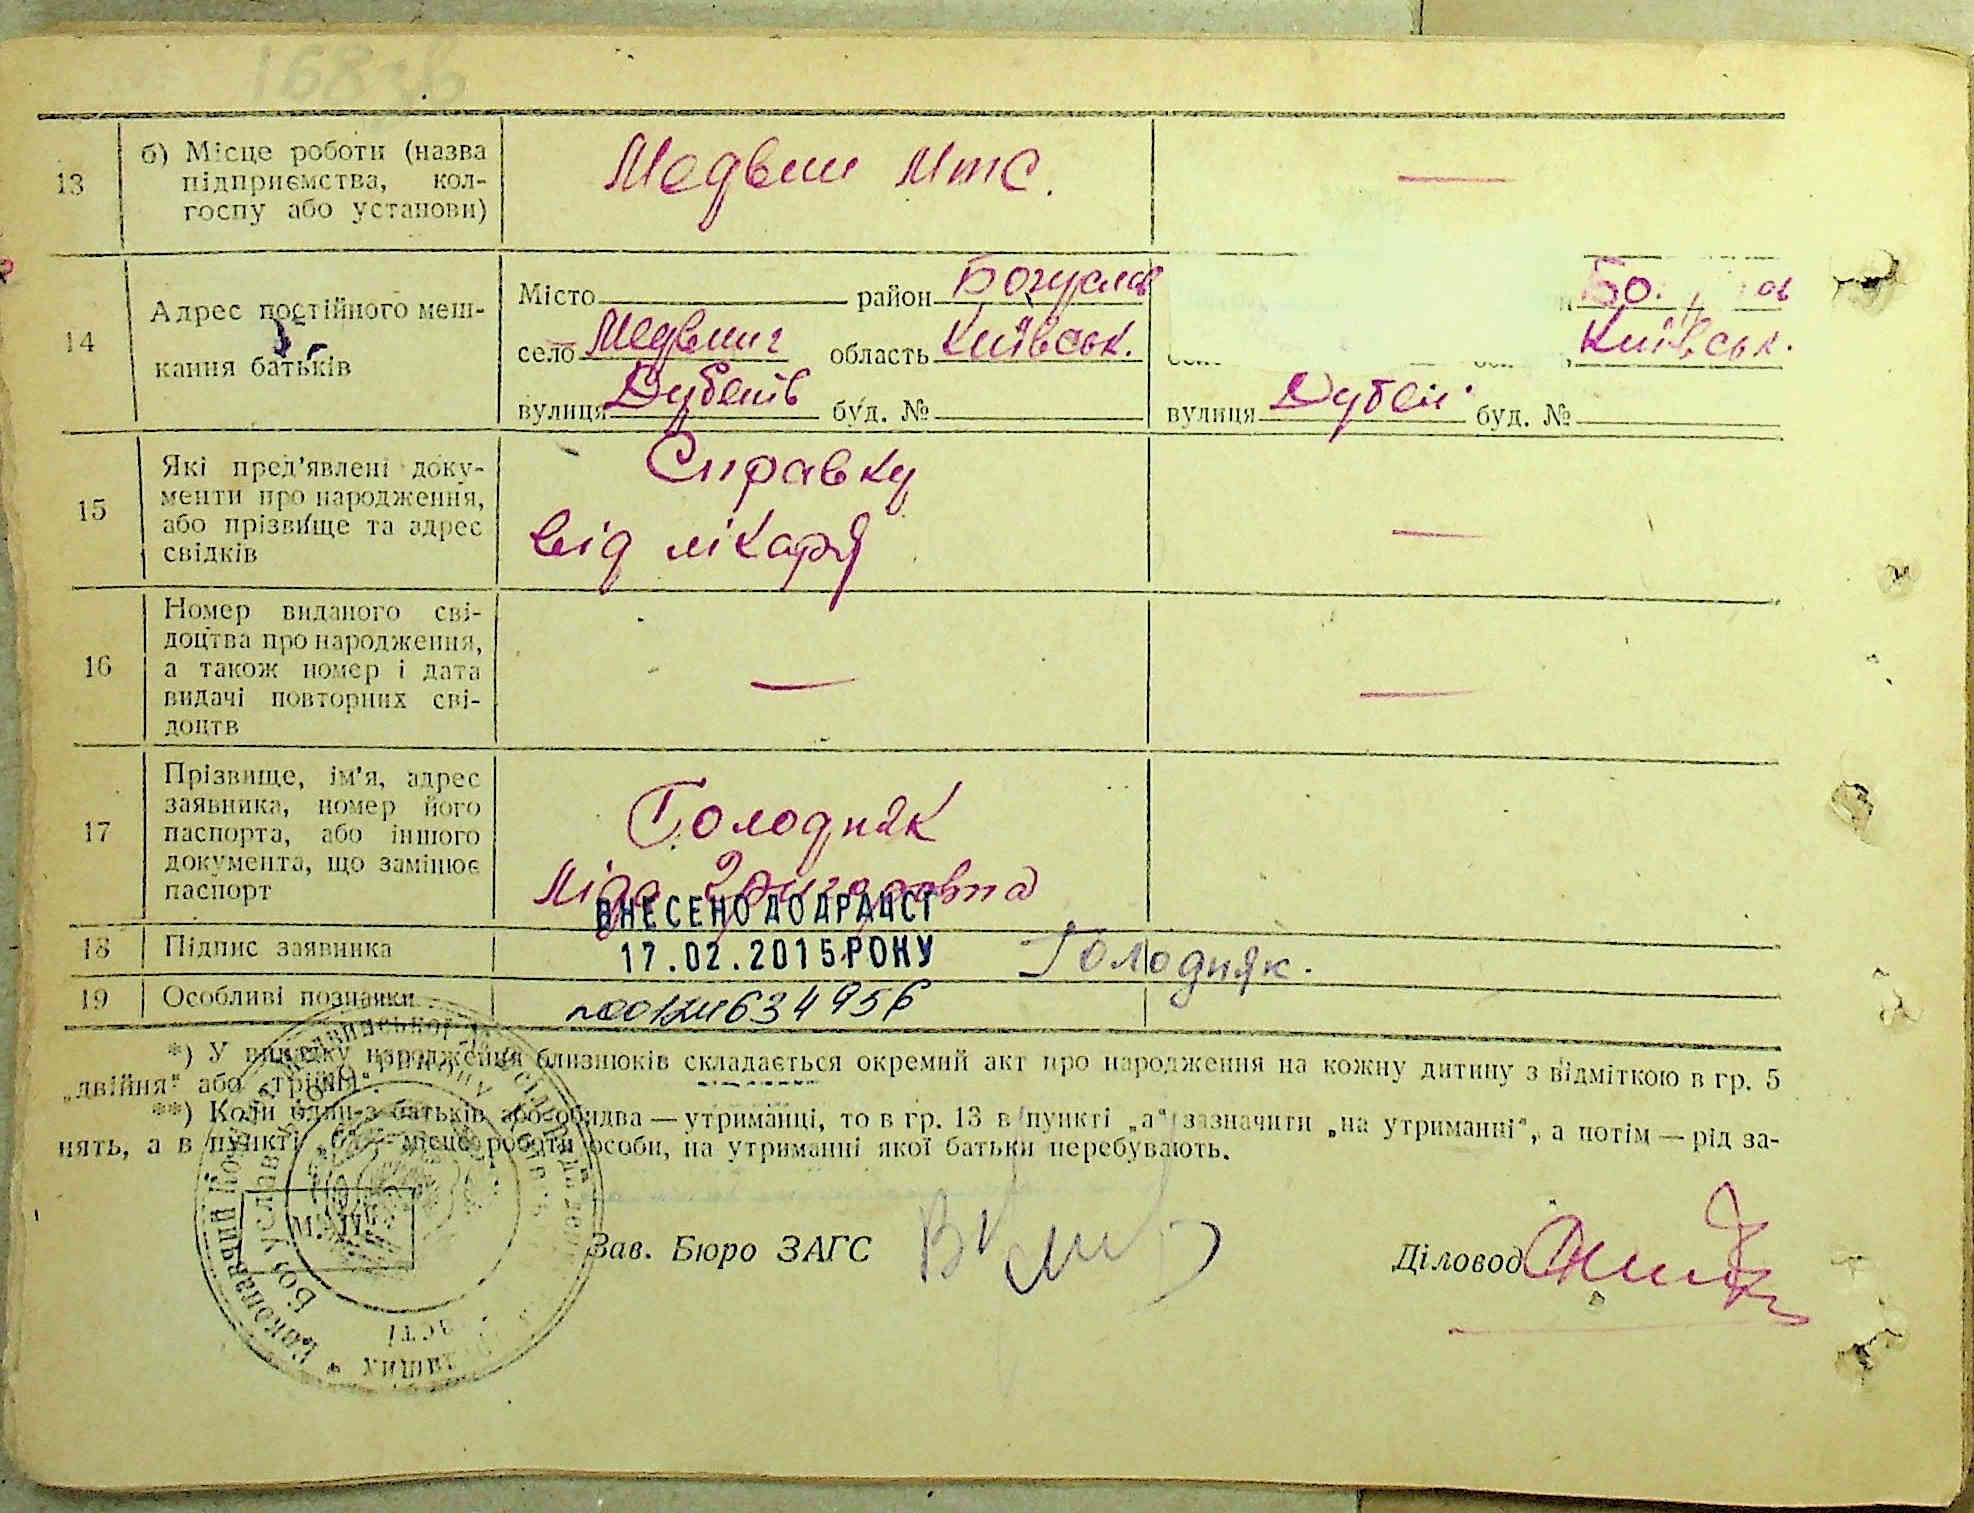 168 зв
13
б) Місце роботи (назва
підприємства, кол-
госпу або установи)
Медвин Мтс.
—
14
Адрес постійного меш-
кання батьків
Місто район Богуслав
село Медвин область Київськ.
вулиця Дубенів буд. №
Київськ.
вулиця Дубен буд. №
15
Які пред'явлені доку-
менти про народження,
або прізвище та адрес
свідків
Справку
від лікаря
—
16
Номер виданого сві-
доцтва про народження,
а також номер і дата
видачі повторних сві-
доцтв
—
—
17
Прізвище, ім'я, адрес
заявника, номер його
паспорта, або іншого
документа, що замінює
паспорт
Голодняк
Ліда Григоровна
ВНЕСЕНО ДО ДРАЦСГ
17.02.2015 РОКУ
18
Підпис заявника
Голодняк.
19
Особливі познаяки
634956
*) У випадку народження близнюків складається окремий акт про народження на кожну дитину з відміткою в гр. 5
„двійня" або „трійня".
**) Коли один з батьків або обидва — утриманці, то в гр. 13 в пункті „а" зазначити „на утриманні", а потім — рід за-
нять, а в пункті „б" — місце роботи особи, на утриманні якої батьки перебувають.
М. П.
Зав. Бюро ЗАГС
Діловод